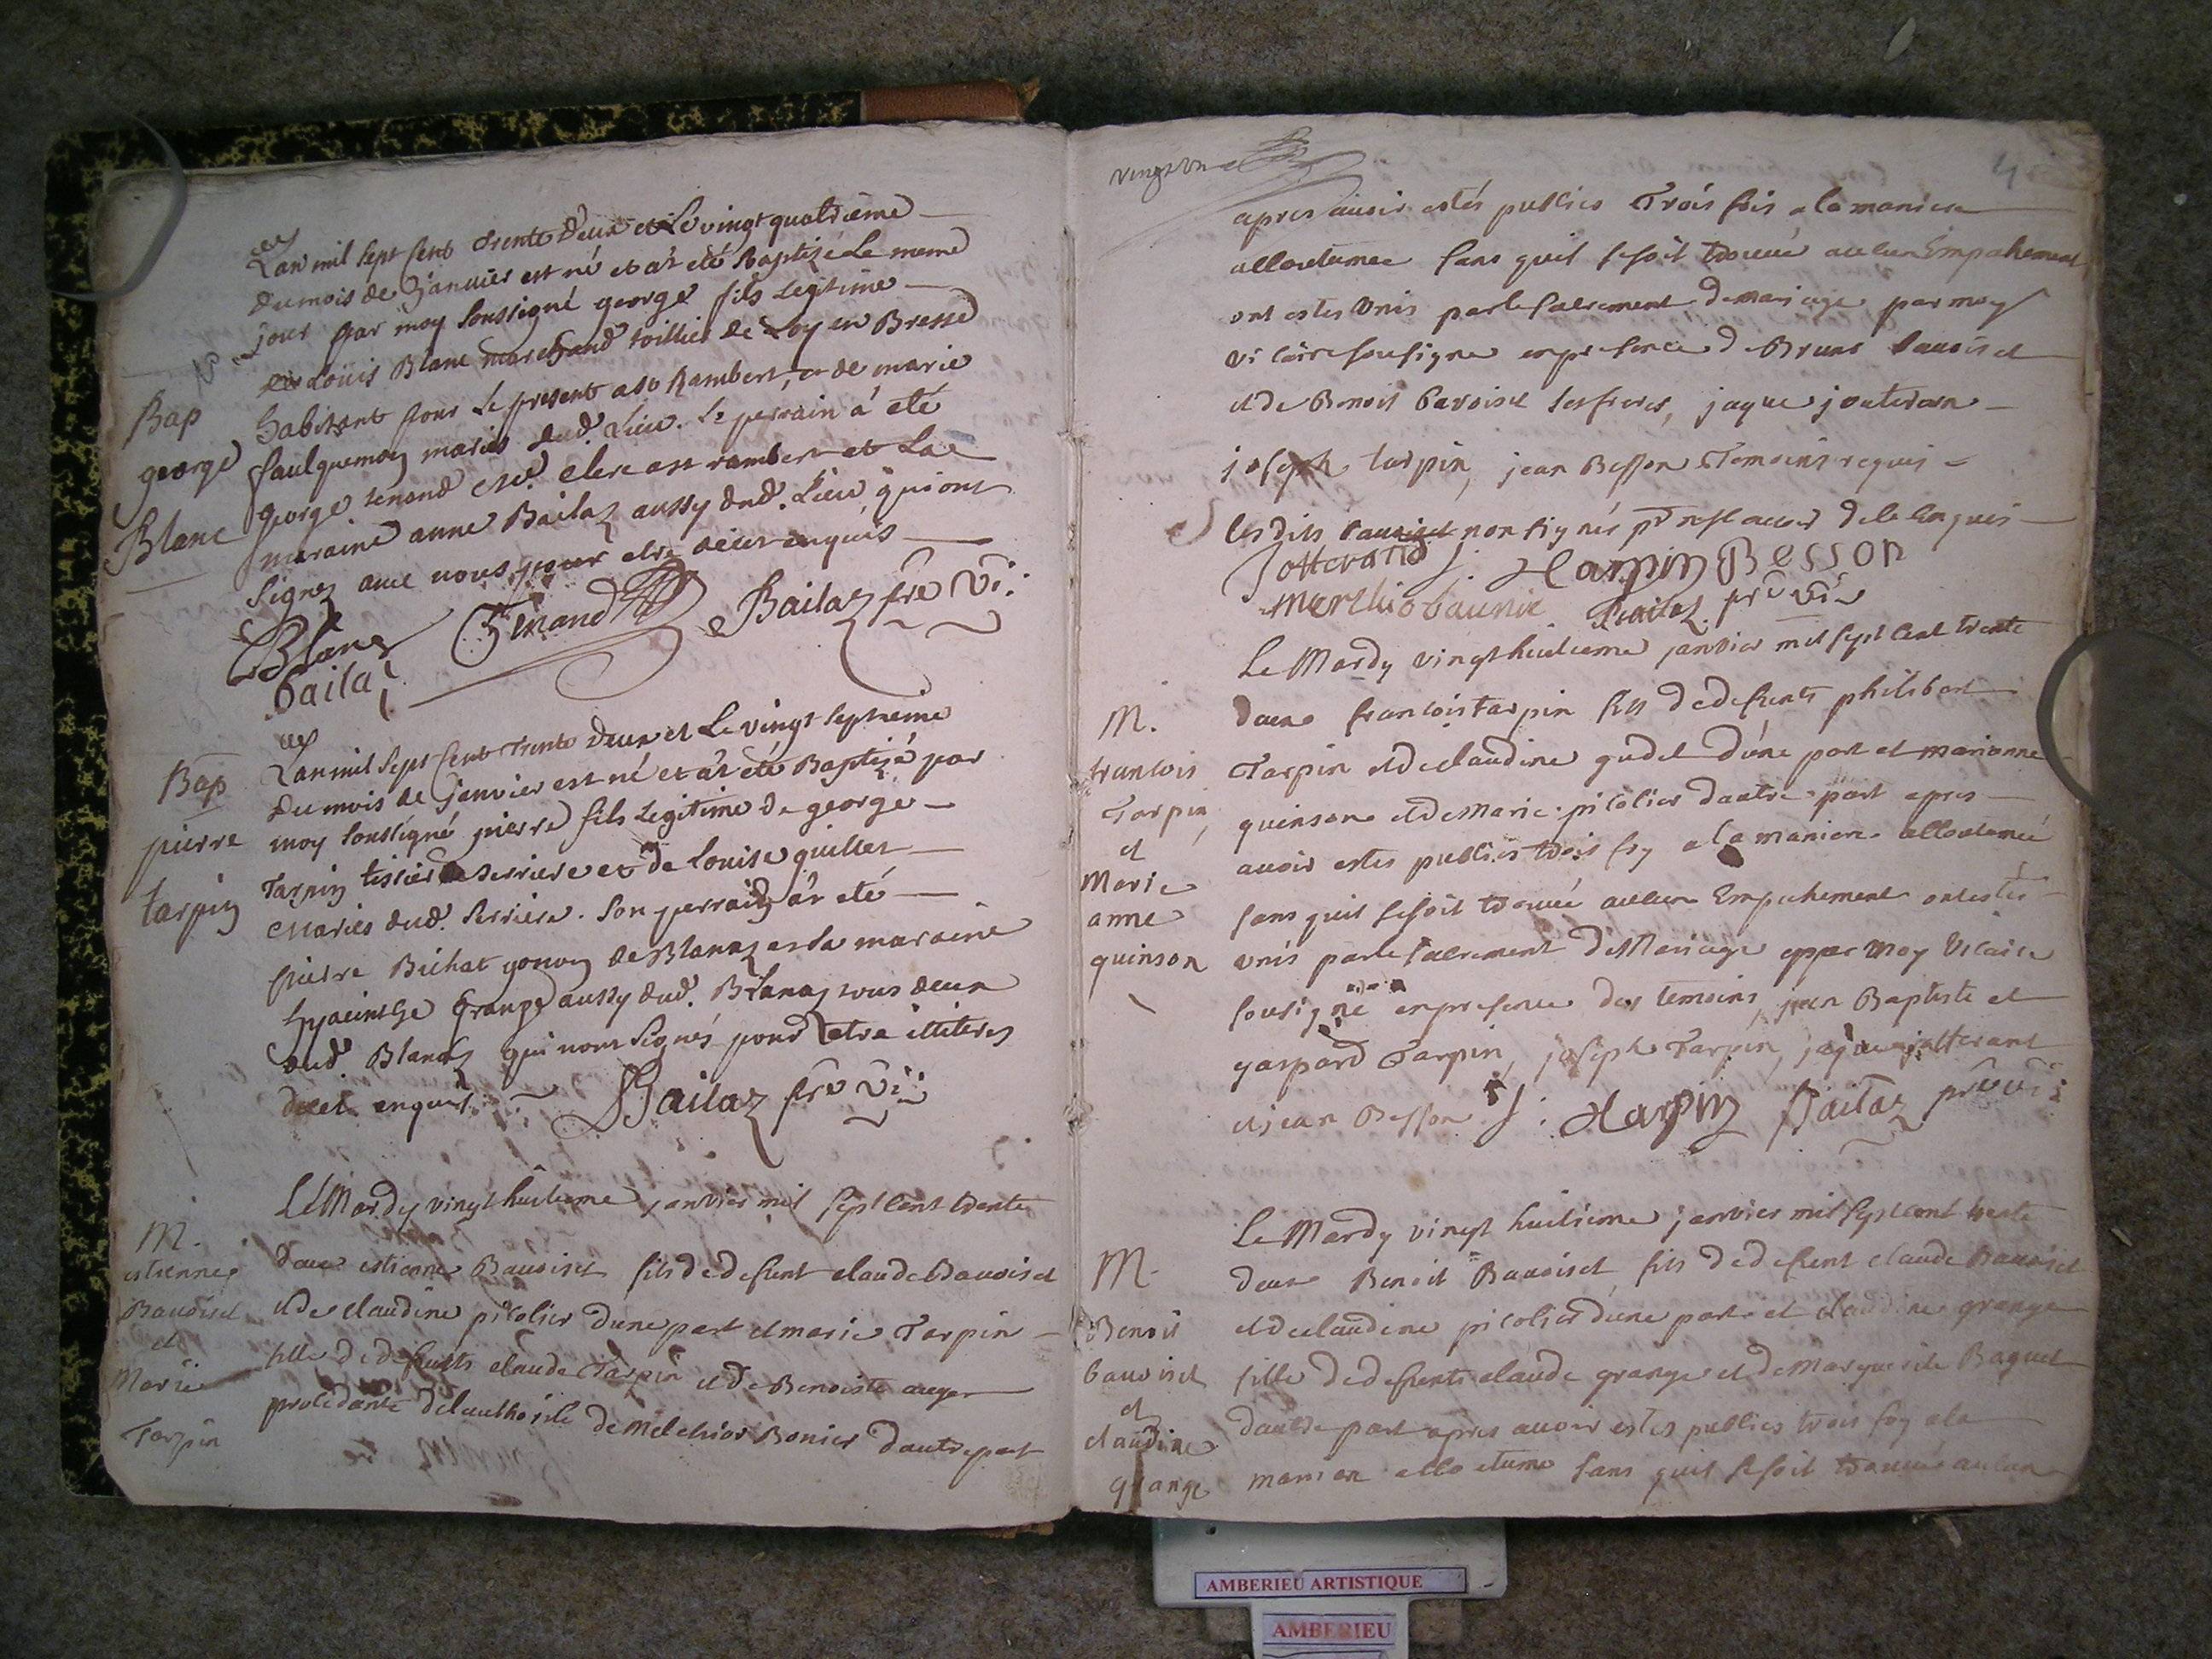 Lan mil sept Cent trente deux et Le vingt quatrieme
du mois de Janvier est né et at eté Baptizé Le meme
jour par moy soussigné george fils Legitime
Louis Blanc marchand toillier de Loy en Bresse
Bap
habitant pour Le present a st Rambert, et de marie
george
faulquemoy mariés dud. Lieu. Le perrain á eté
george tenand clerc a st rambert et La
Blanc
maraine anne Bailaz aussy dud. Lieu, qui ont
Signez avec nous pour etre de ce enquis
Blanc Tenand Bailaz pre vi:
baila
Lan mil Sept Cent Trente Deux et Le vingt septieme
Bap
du mois de Janvier est né et at eté Baptizé par
pierre
moy soussigné pierre fils Legitime de george
Tarpin tissier de Serriere et de Louise quillet
tarpin
Mariés dud. Serriere. Son perrain at eté
pierre Bichat de Blanaz et la maraine
hyacinthe grange aussy dud. Blanaz tous deux
dud. Blanaz qui n'ont Signés pour etre illiterez
de ce enquis
Bailaz pre vi:
Le Mardy vingt huitieme janvier mil sept cent trente
M.
estienne
Bauoiset
et
Marie
Tarpin
deux estienne Bauoiset fils de defunt claude Bauoiset
et de claudine picolier dune part et marie Tarpin
fille de defunts claude Tarpin et de Benoiste auger
procedante de lauthorité de Melchior Bonier dautre part
vingt un
4
apres auoir estés publies Trois fois a la maniere
accoutumee sans quil se soit trouué aucun Empechement
ont estes Unis par le sacrement de mariage par moy
vicaire sousigne en presence de Bruno bauoiset
et de Benoit bavoiset ses freres, jaque jouteran
joseph tarpin, jean Besson Temoins requis
les dits bauoiset non signés de ce enquis
jotterand J. Harpin Besson
Bailaz pre vi:
Le Mardy vingt huitieme janvier mil sept cent trente
M.
francois
Tarpin,
et
Marie
anne
quinson
deux francois Tarpin fils de defunts philibert
Tarpin et de claudine gudet d'une part et marianne
quinson et de Marie picolier dautre part apres
auoir estes publies trois foy a la maniere accoutumeé
sans quil se soit trouué aucun Empechement ont estés
unis par le sacrement de Mariage par Moy Vicaire
sousigné en presence des temoins, jean Baptiste et
gaspard Tarpin, joseph Tarpin, jaque jotterant
et jean Besson J: Harpin Bailaz pre vi:
Le Mardy vingt huitieme janvier mil sept cent trente
M.
Benoit
bauoiset
et
claudine
grange
deux Benoit Bauoiset fils de defunt claude Bauoiset
et de claudine picolier d'une part et claudine grange
fille de defunts claude grange et de Marguerite Baguet
dautre part apres auoir estés publies trois foy a la
maniere accoutumé sans quil se soit trouué aucun
AMBERIEU ARTISTIQUE
AMBERIEU